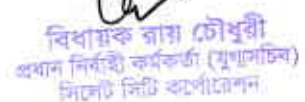 বিধায়ক রায় চৌধুরী
প্রধান নির্বাহী কর্মকর্তা (যুগ্মসচিব)
সিলেট সিটি কর্পোরেশন